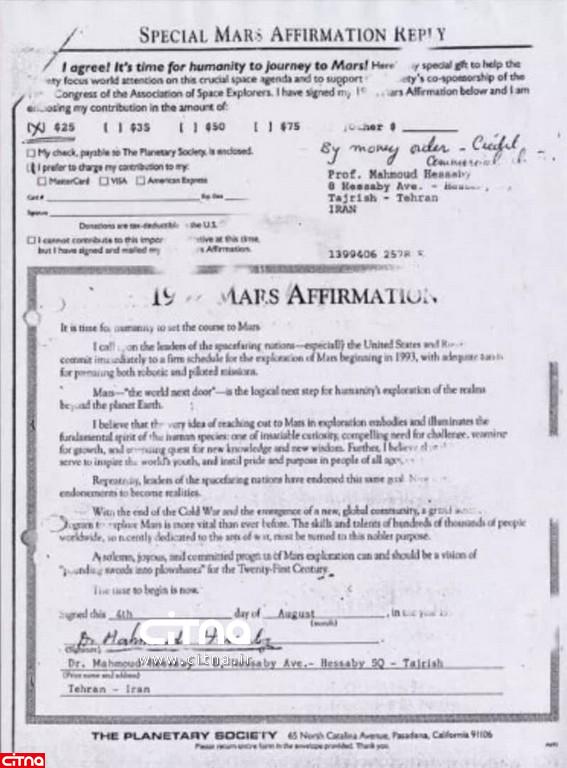 SPECIAL MARS AFFIRMATION REPLY
I agree! It's time for humanity to journey to Mars! Here my special gift to help the
focus world attention on this crucial space agenda and to support co-sponsorship of the
Congress of the Association of Space Explorers. I have signed my Mars Affirmation below and I am
enclosing my contribution in the amount of:
[X] $25 [ ] $35 [ ] $50 [ ] $75 other $
By money order - Credit
Commercial
My check, payable to The Planetary Society, is enclosed.
I prefer to charge my contribution to my:
MasterCard VISA American Express
Card # Exp. Date
Signature
Donations are tax-deductible the U.S.
I cannot contribute to this at this time,
but I have signed and mailed my Affirmation.
Prof. Mahmoud Hessaby
8 Hessaby Ave. - Hessaby
Tajrish - Tehran
IRAN
1399406 2578
19 MARS AFFIRMATION
It is time for humanity to set the course to Mars
I call on the leaders of the spacefaring nations—especially the United States and
commit immediately to a firm schedule for the exploration of Mars beginning in 1993, with adequate
for preparing both robotic and piloted missions.
Mars—"the world next door"—is the logical next step for humanity's exploration of the realms
beyond the planet Earth.
I believe that the very idea of reaching out to Mars in exploration embodies and illuminates the
fundamental spirit of the human species: one of insatiable curiosity, compelling need for challenge, yearning
for growth, and unceasing quest for new knowledge and new wisdom. Further, I believe
serve to inspire the world's youth, and instil pride and purpose in people of all ages
Repeatedly, leaders of the spacefaring nations have endorsed this same goal. Now
endorsements to become realities.
With the end of the Cold War and the emergence of a new, global community, a grand
program to explore Mars is more vital than ever before. The skills and talents of hundreds of thousands of people
worldwide, so recently dedicated to the arts of war, must be turned to this nobler purpose.
A solemn, joyous, and committed program of Mars exploration can and should be a vision of
"pounding swords into plowshares" for the Twenty-First Century.
The time to begin is now.
Signed this 4th day of August, in the year
(month)
Dr. Mahmoud Hessaby
(Signature)
citna
www.citna.ir
Dr. Mahmoud Hessaby - 8, Hessaby Ave.- Hessaby SQ - Tajrish
(Print name and address)
Tehran - Iran
THE PLANETARY SOCIETY 65 North Catalina Avenue, Pasadena, California 91106
Please return entire form in the envelope provided. Thank you.
CITNA